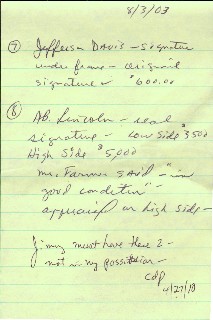 8/3/03
⑦ Jefferson Davis - signature
under frame - original
signature - $600.00
⑧ Ab. Lincoln - real
signature - low side $3500
High side $5,000
Mr. Farmer said - "in
good condition" -
appraised on high side -
Jimmy must have these 2 -
not in my possession -
cdp
4/27/10